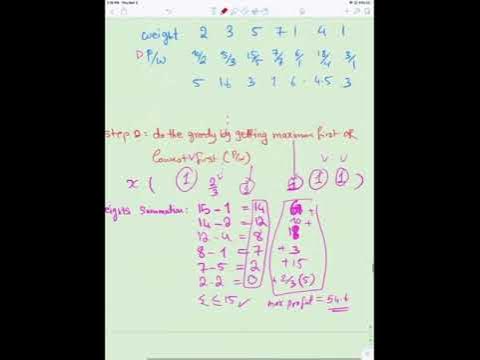 weight 2 3 5 7 1 4 1
P/w 10/2 5/3 15/5 7/7 6/1 18/4 3/1
5 1.6 3 1 6 4.5 3
step 2: do the greedy by getting maximum first or
lowest first (P/w)
x ( 1 2/3 1 1 1 1 )
weights Summation: 15 - 1 = 14 6 +
14 - 2 = 12 10 +
12 - 4 = 8 18
8 - 1 = 7 + 3
7 - 5 = 2 + 15
2 - 2 = 0 + 2/3 (5)
Σ ≤ 15 ✓ max profit = 54.6